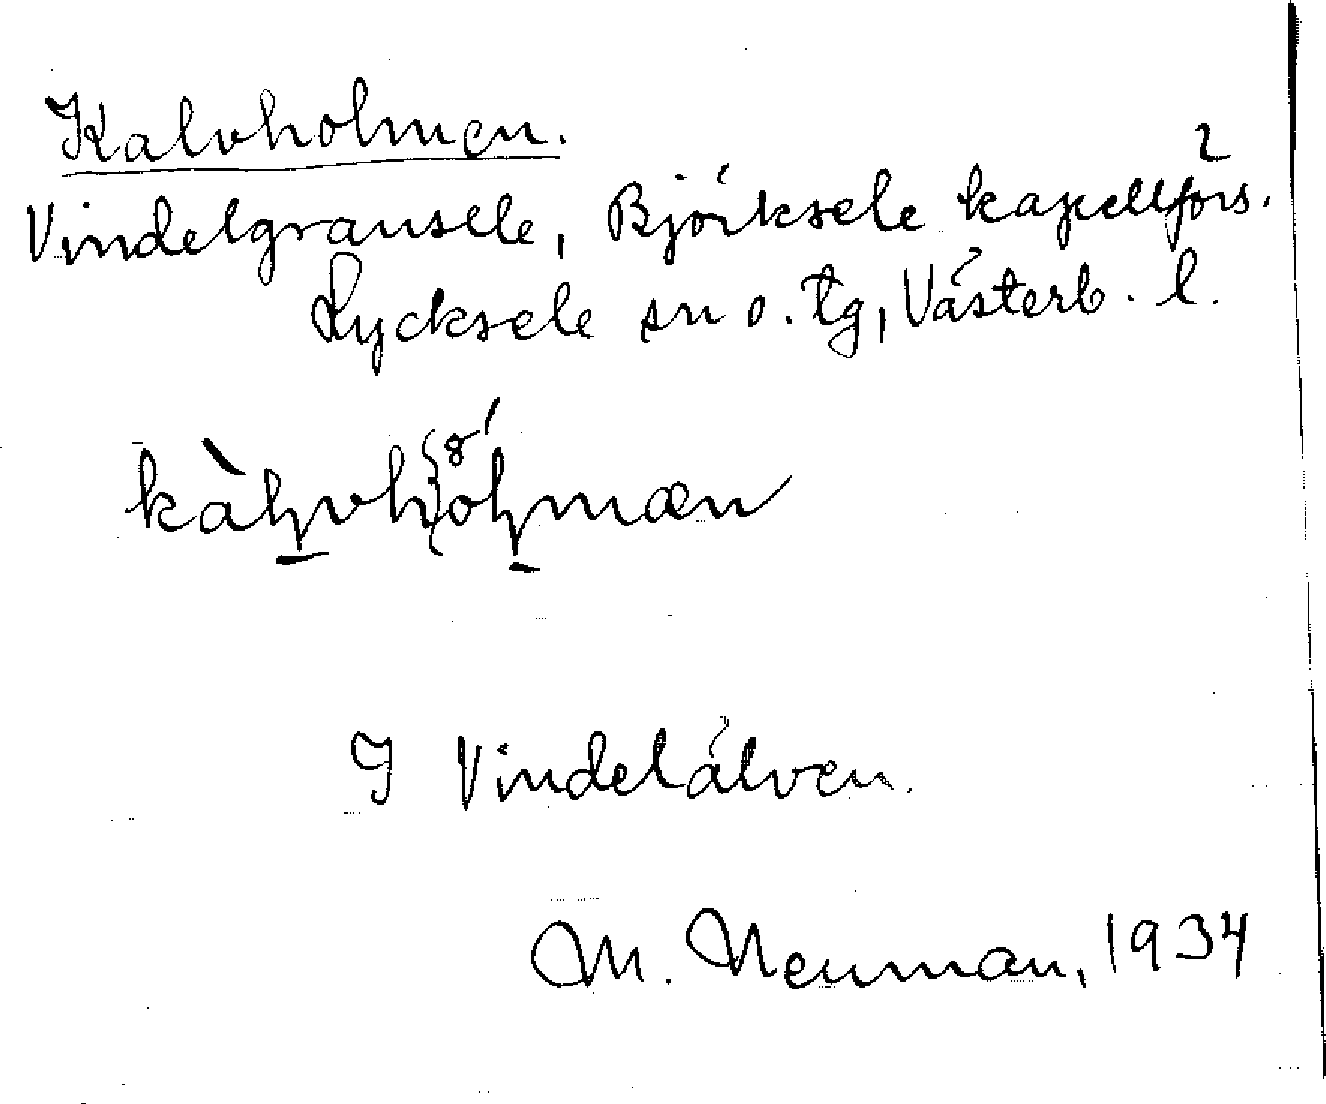 Kalvholmen.
Vindelgransele, Björksele kapellförs.
Lycksele sn o. tg, Västerb. l.
I Vindelälven.
M. Neuman, 1934